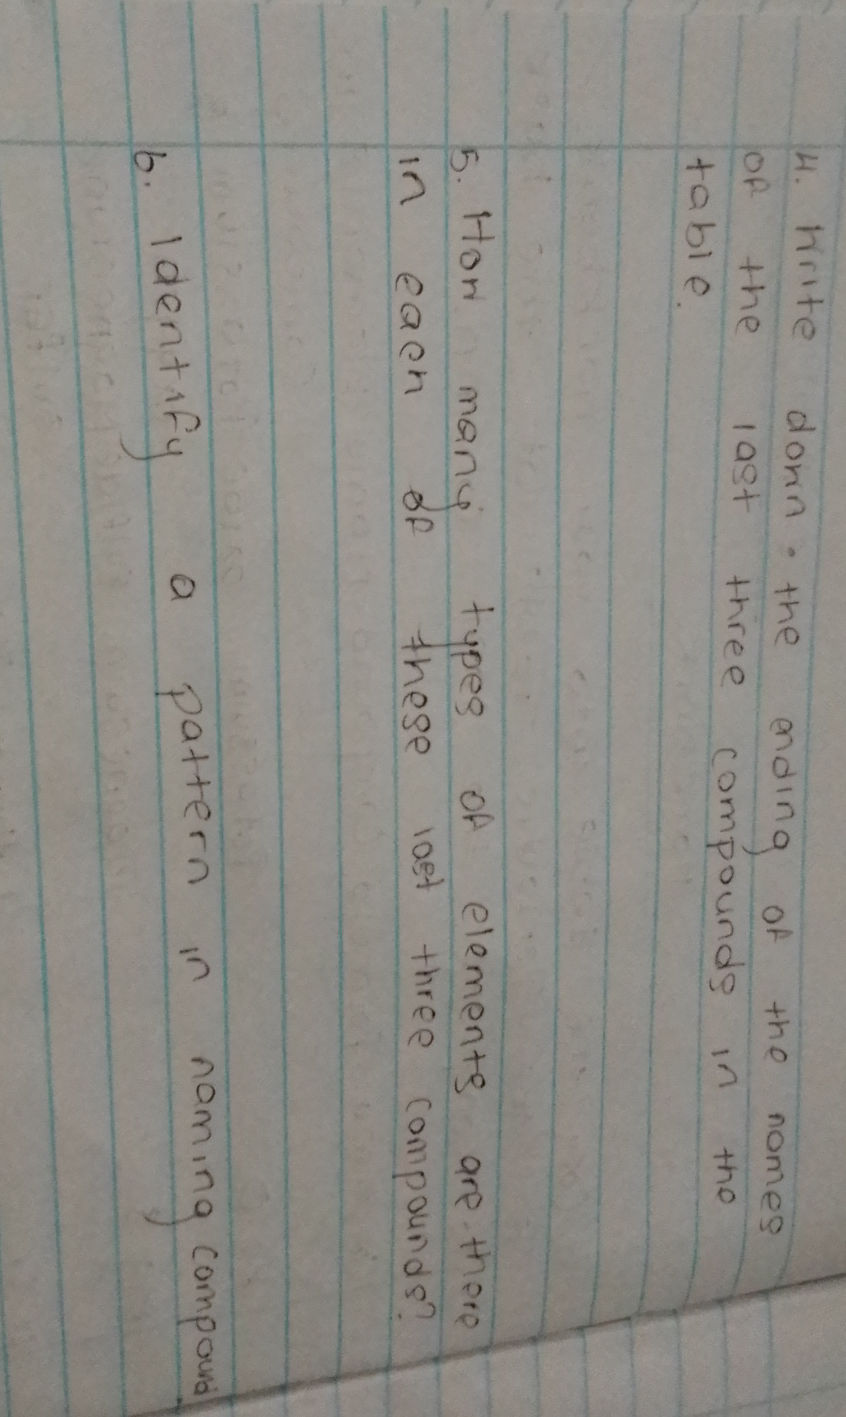 4. Write down the ending of the names
of the last three compounds in the
table.
5. How many types of elements are there
in each of these last three compounds?
6. Identify a pattern in naming compound